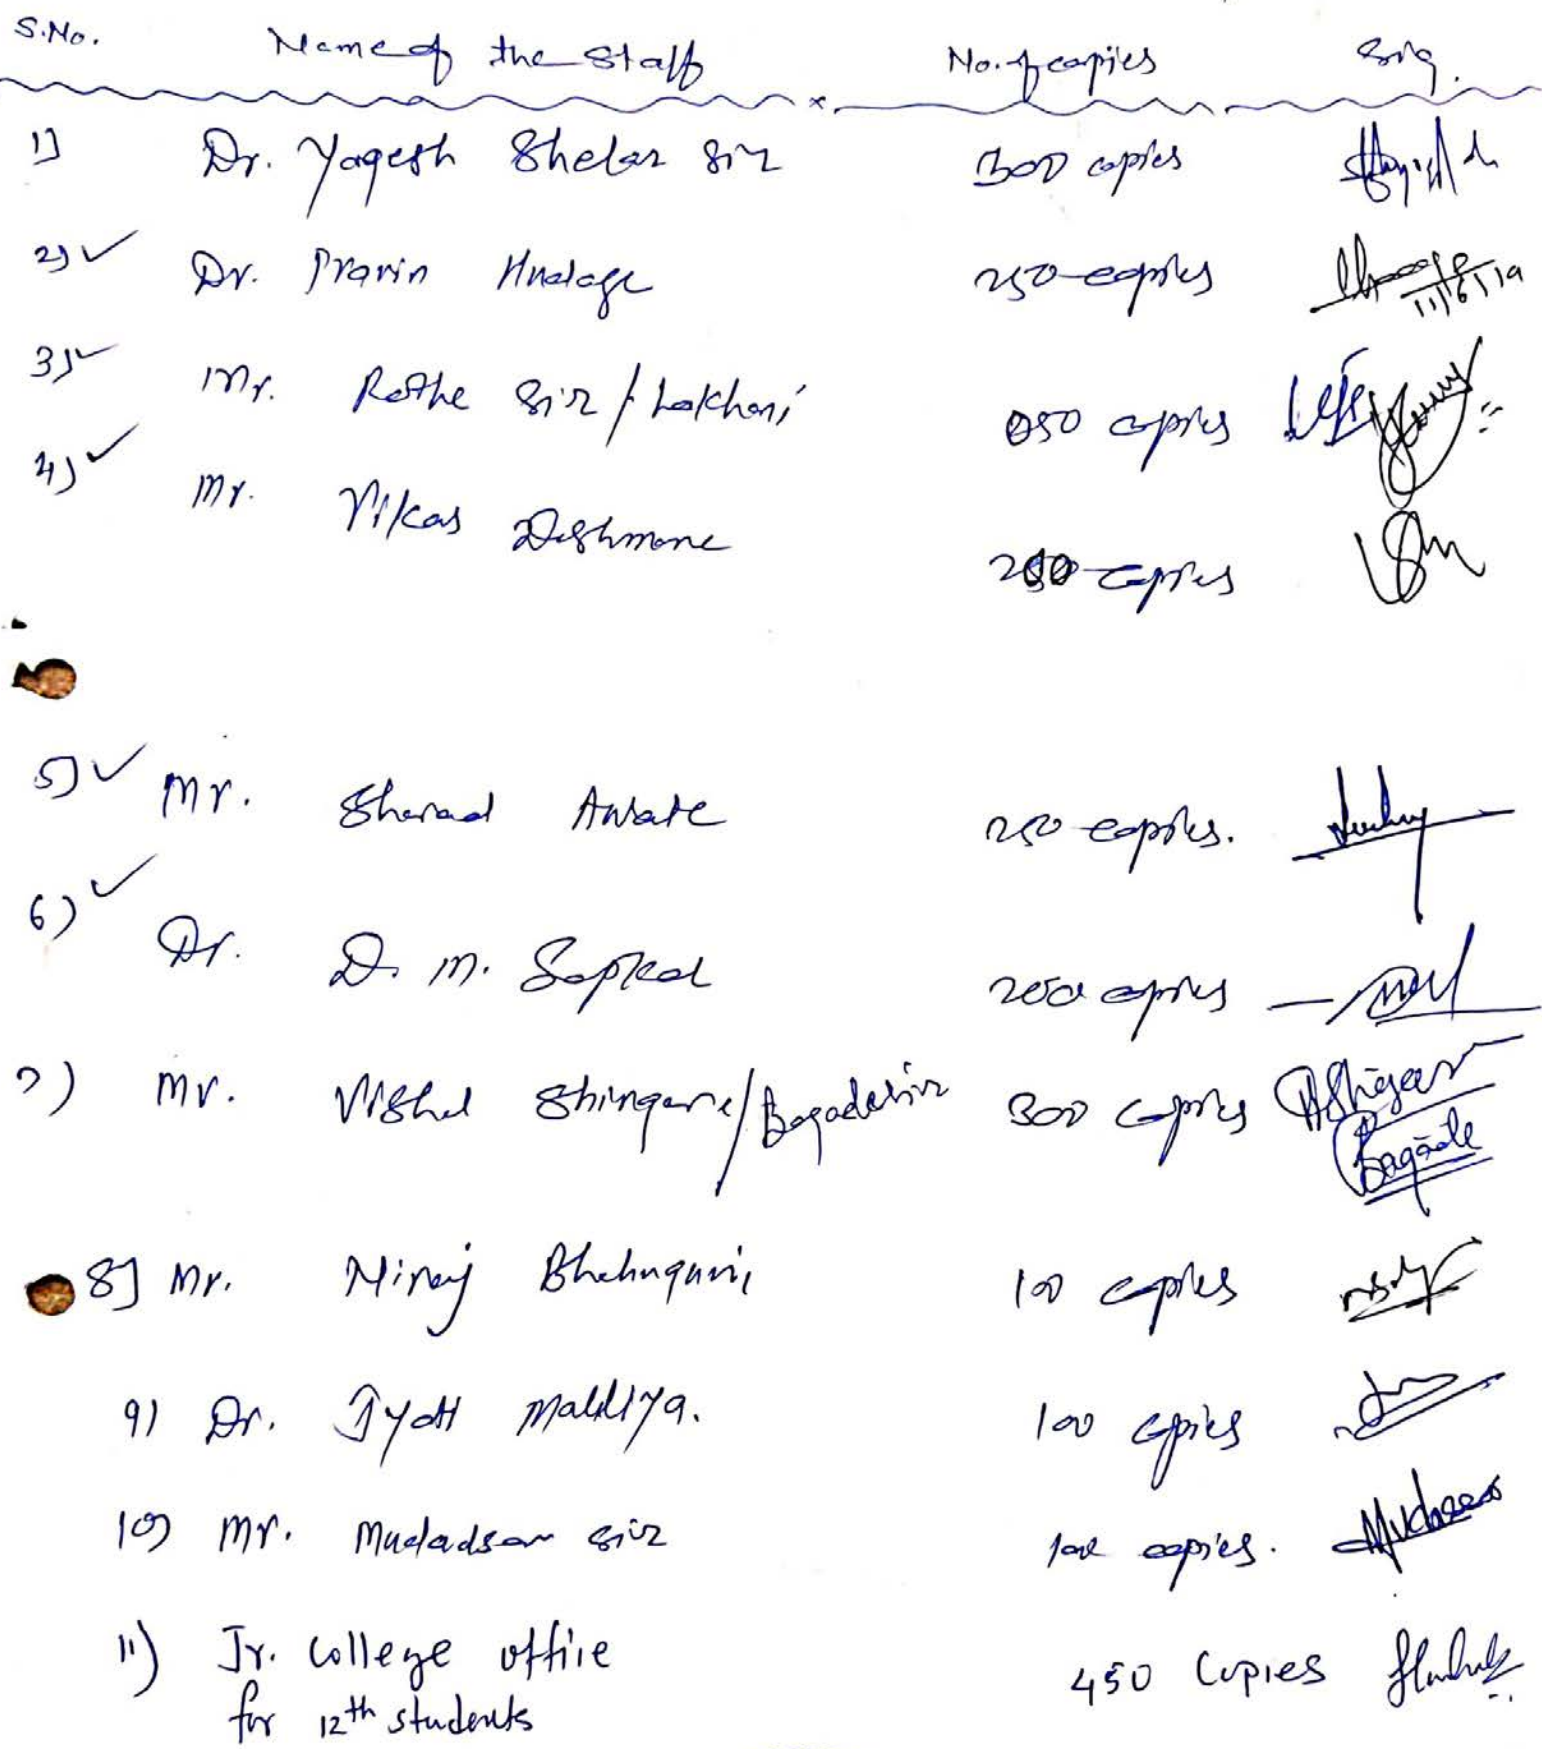 S.No. Name of the Staff No. of copies Sig.
1) Dr. Yogesh Shelar Sir 300 copies
2) ✓ Dr. Pravin 250 copies 11/6/19
3) ✓ Mr. Rothe Sir / Lakhani 050 copies
4) ✓ Mr. Vikas Deshmane 200 copies
5) ✓ Mr. Sharad Awate 250 copies.
6) ✓ Dr. D. M. Sapkal 200 copies
7) Mr. Vishal Shingare / Bagade sir 300 copies
Bagade
8] Mr. Niraj 100 copies
9) Dr. Jyoti 100 copies
10) Mr. Mudadsar sir 100 copies.
11) Jr. College office 450 Copies
for 12th students